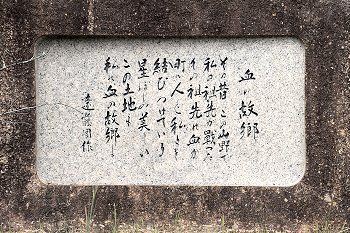 血の故郷
その昔この山野で
私の祖先が戦った
その祖先の血が
町の人と私とを
結びつけている
星 美しい
この土地は
私の血の故郷
遠藤周作